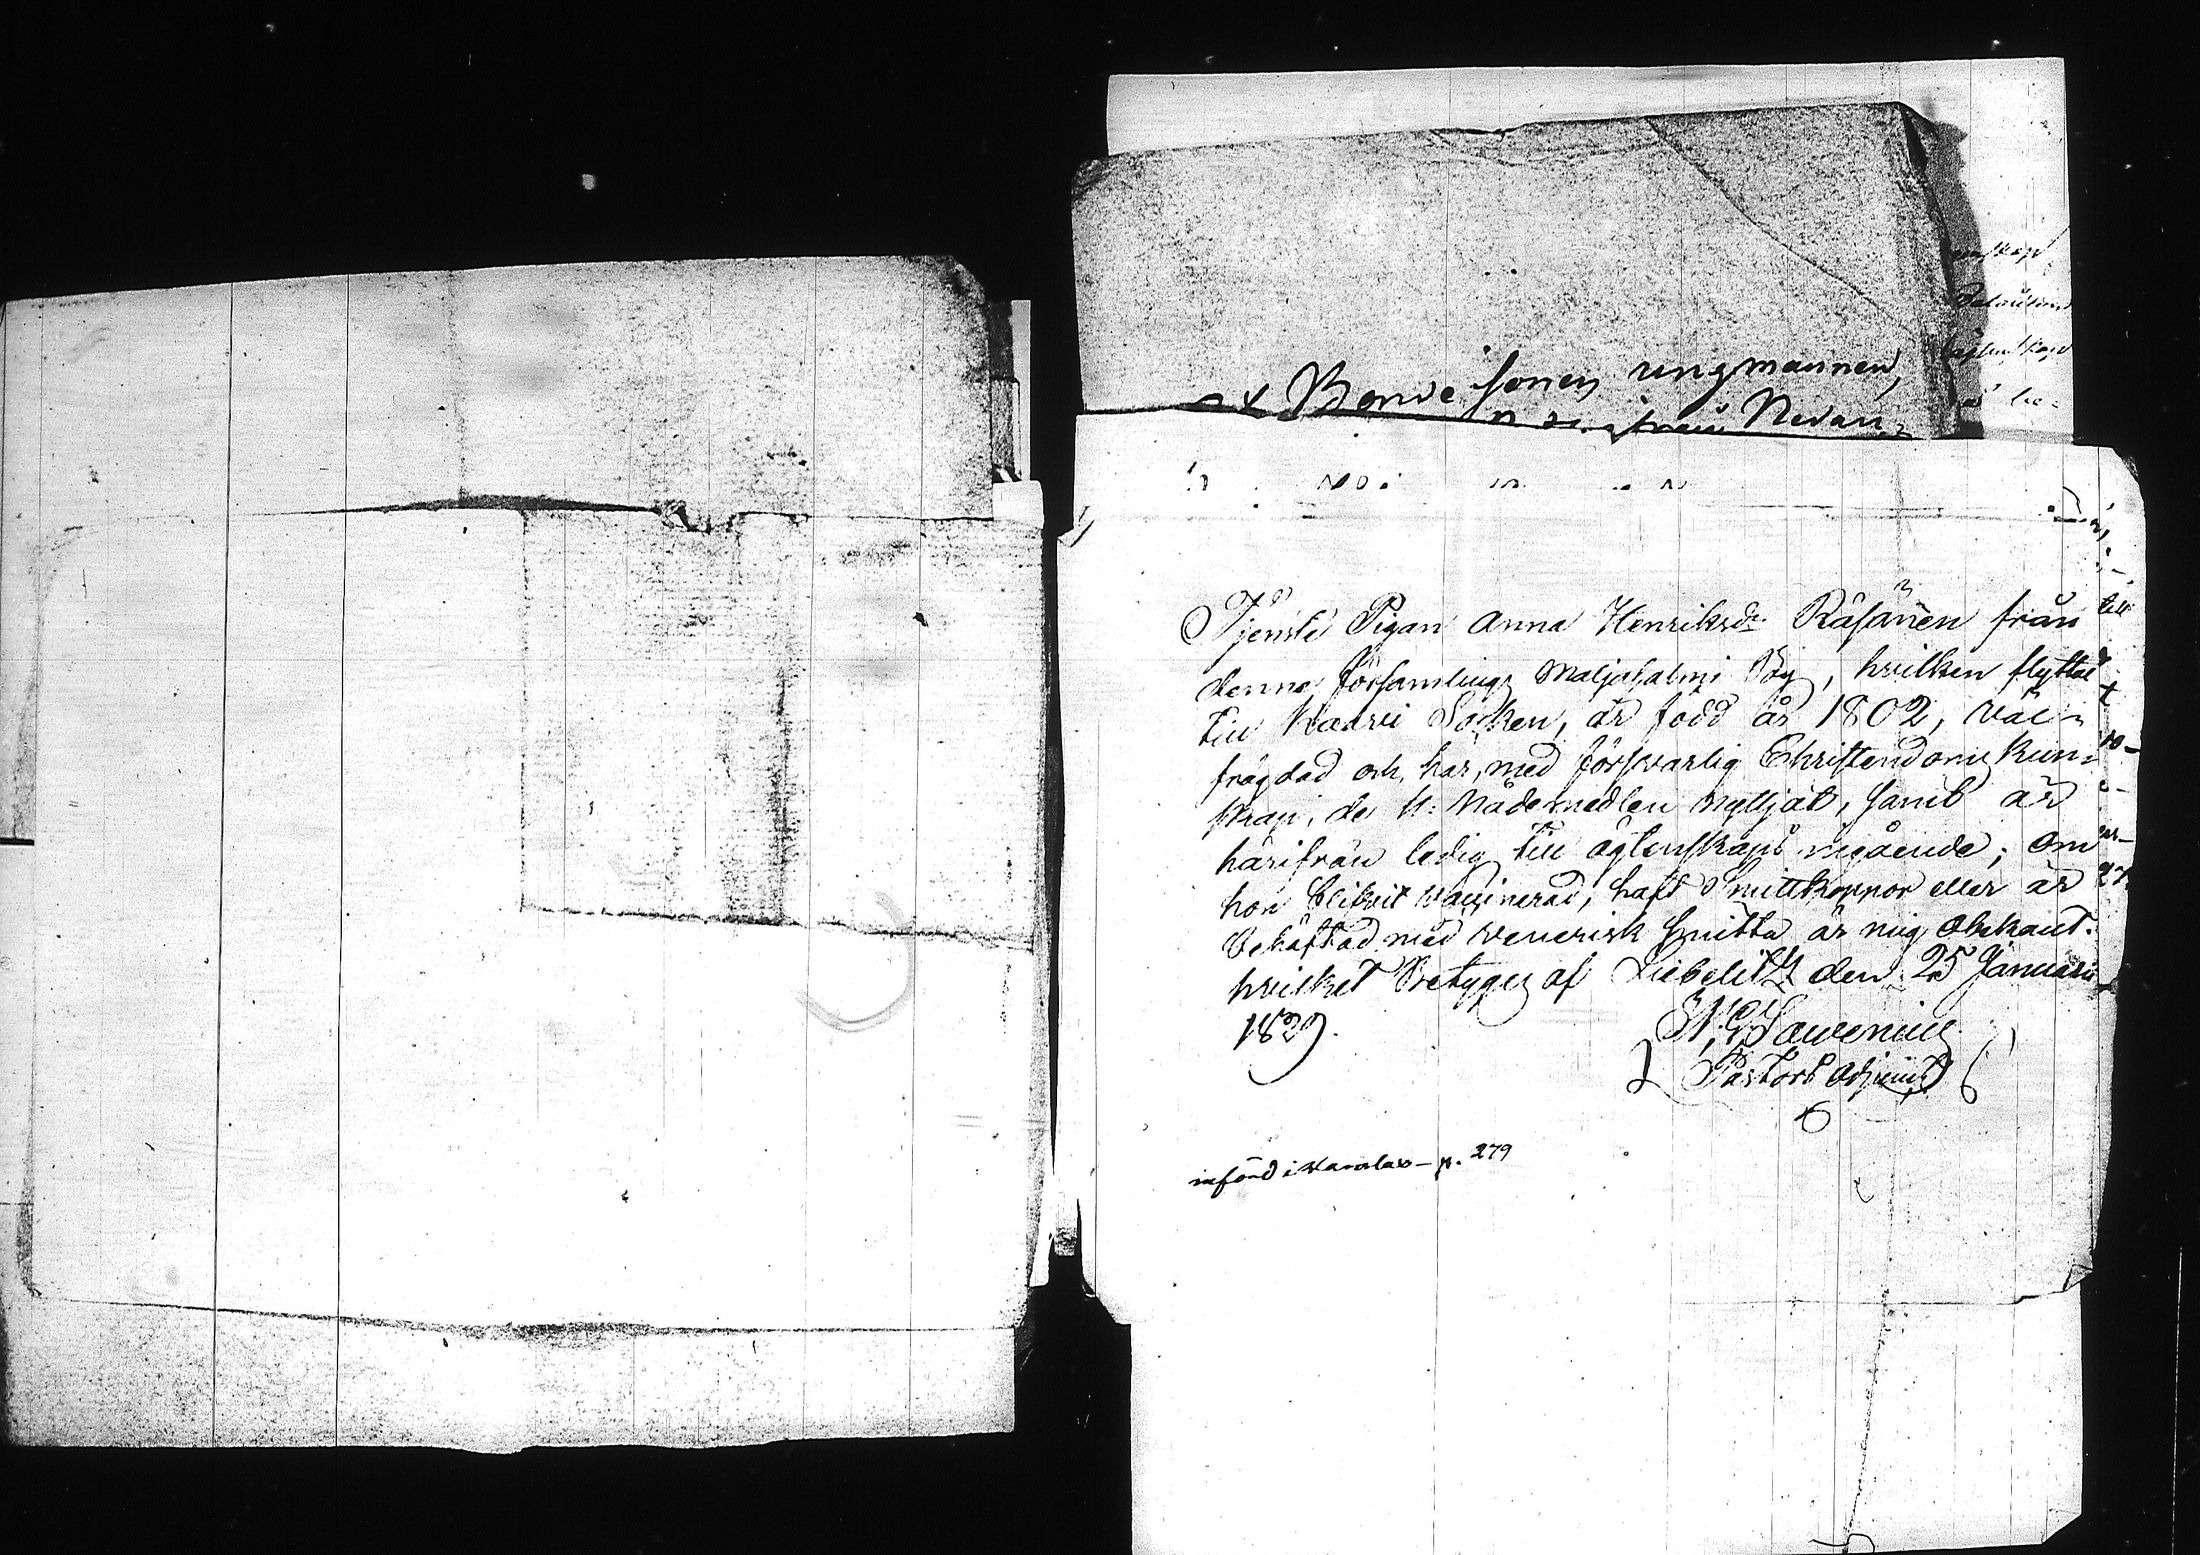 Bonde sonen ungmannen,
från Nevan
Tjenste Pigan Anna Henriksdr Räsänen från
denna församlings Maljasalmi By, hvilken flyttat
till Kaavi Socken, är född år 1802, väl-
frägdad och har, med försvarlig Christendoms kun-
skap, de H: Nådemedlen nyttjat, samt är
härifrån ledig till ägtenskaps ingående; om
hon blifvit vaccinerad, haft Smittkoppor eller är
behäftad med venerisk smitta är mig obekant.
hvilket betygas af Liebelitz den 25 Januarii
1829.
Pastors Adjunct
införd i Kavilax - p. 279